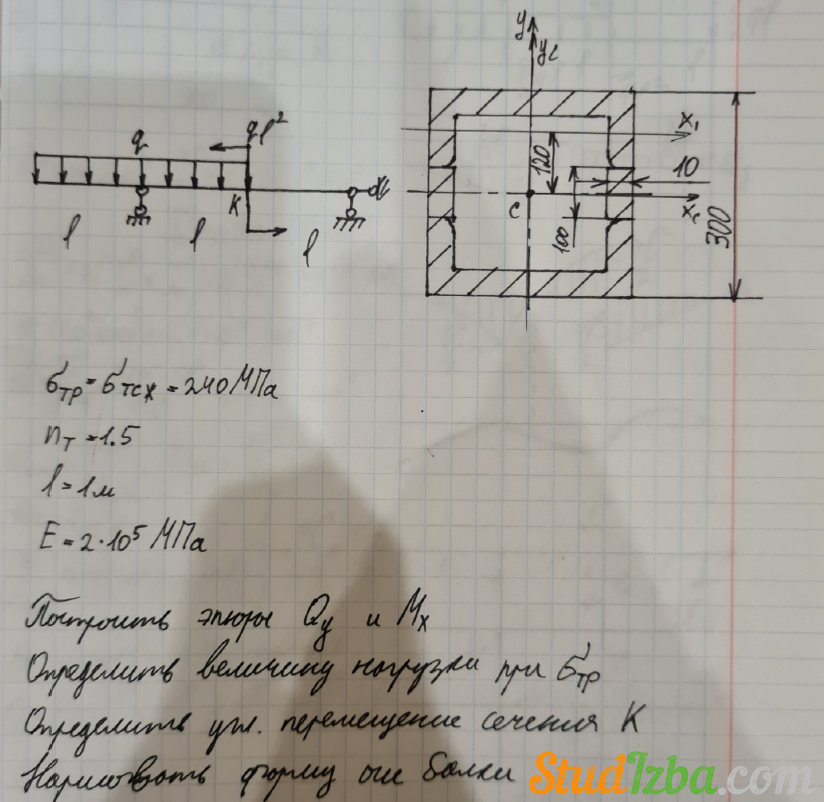 y
yc
q
ql²
K
l
l
l
x₁
120
10
c
xc
100
300
σтр = σтсж = 240 МПа
nт = 1.5
l = 1м
E = 2·10⁵ МПа
Построить эпюры Qy и Mx
Определить величину нагрузки при σтр
Определить угл. перемещение сечения K
Нарисовать форму оси балки
StudIzba.com